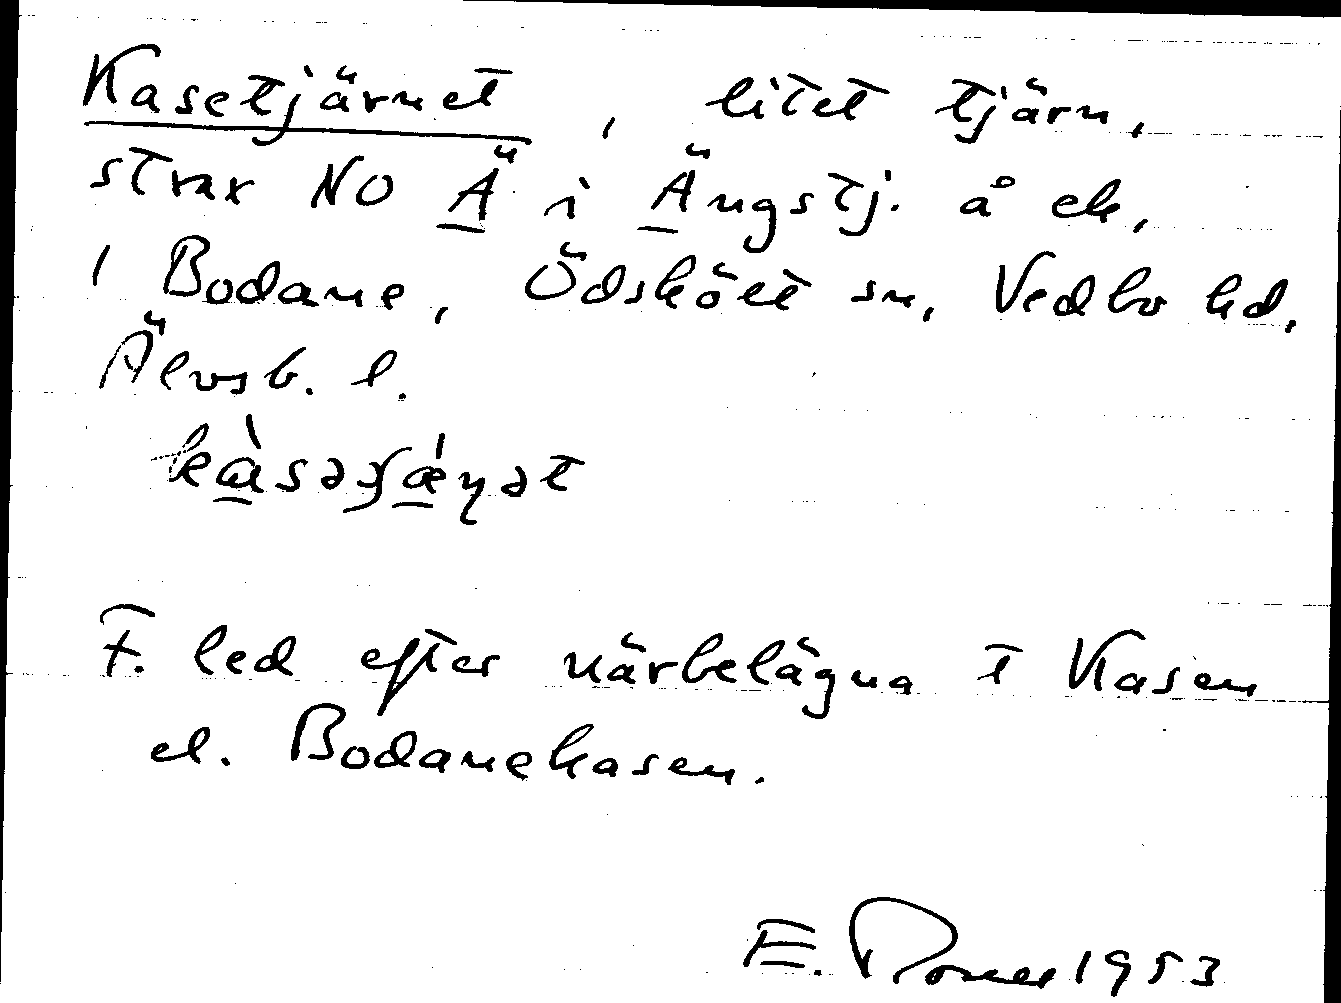 Kasetjärnet, litet tjärn,
strax NO Ä i Ängstj. å ek.
i Bodane, Ödskölt sn, Vedbo hd,
Älvsb. l.
F. led efter närbelägna t Kasen
el. Bodanekasen.
E. 1953